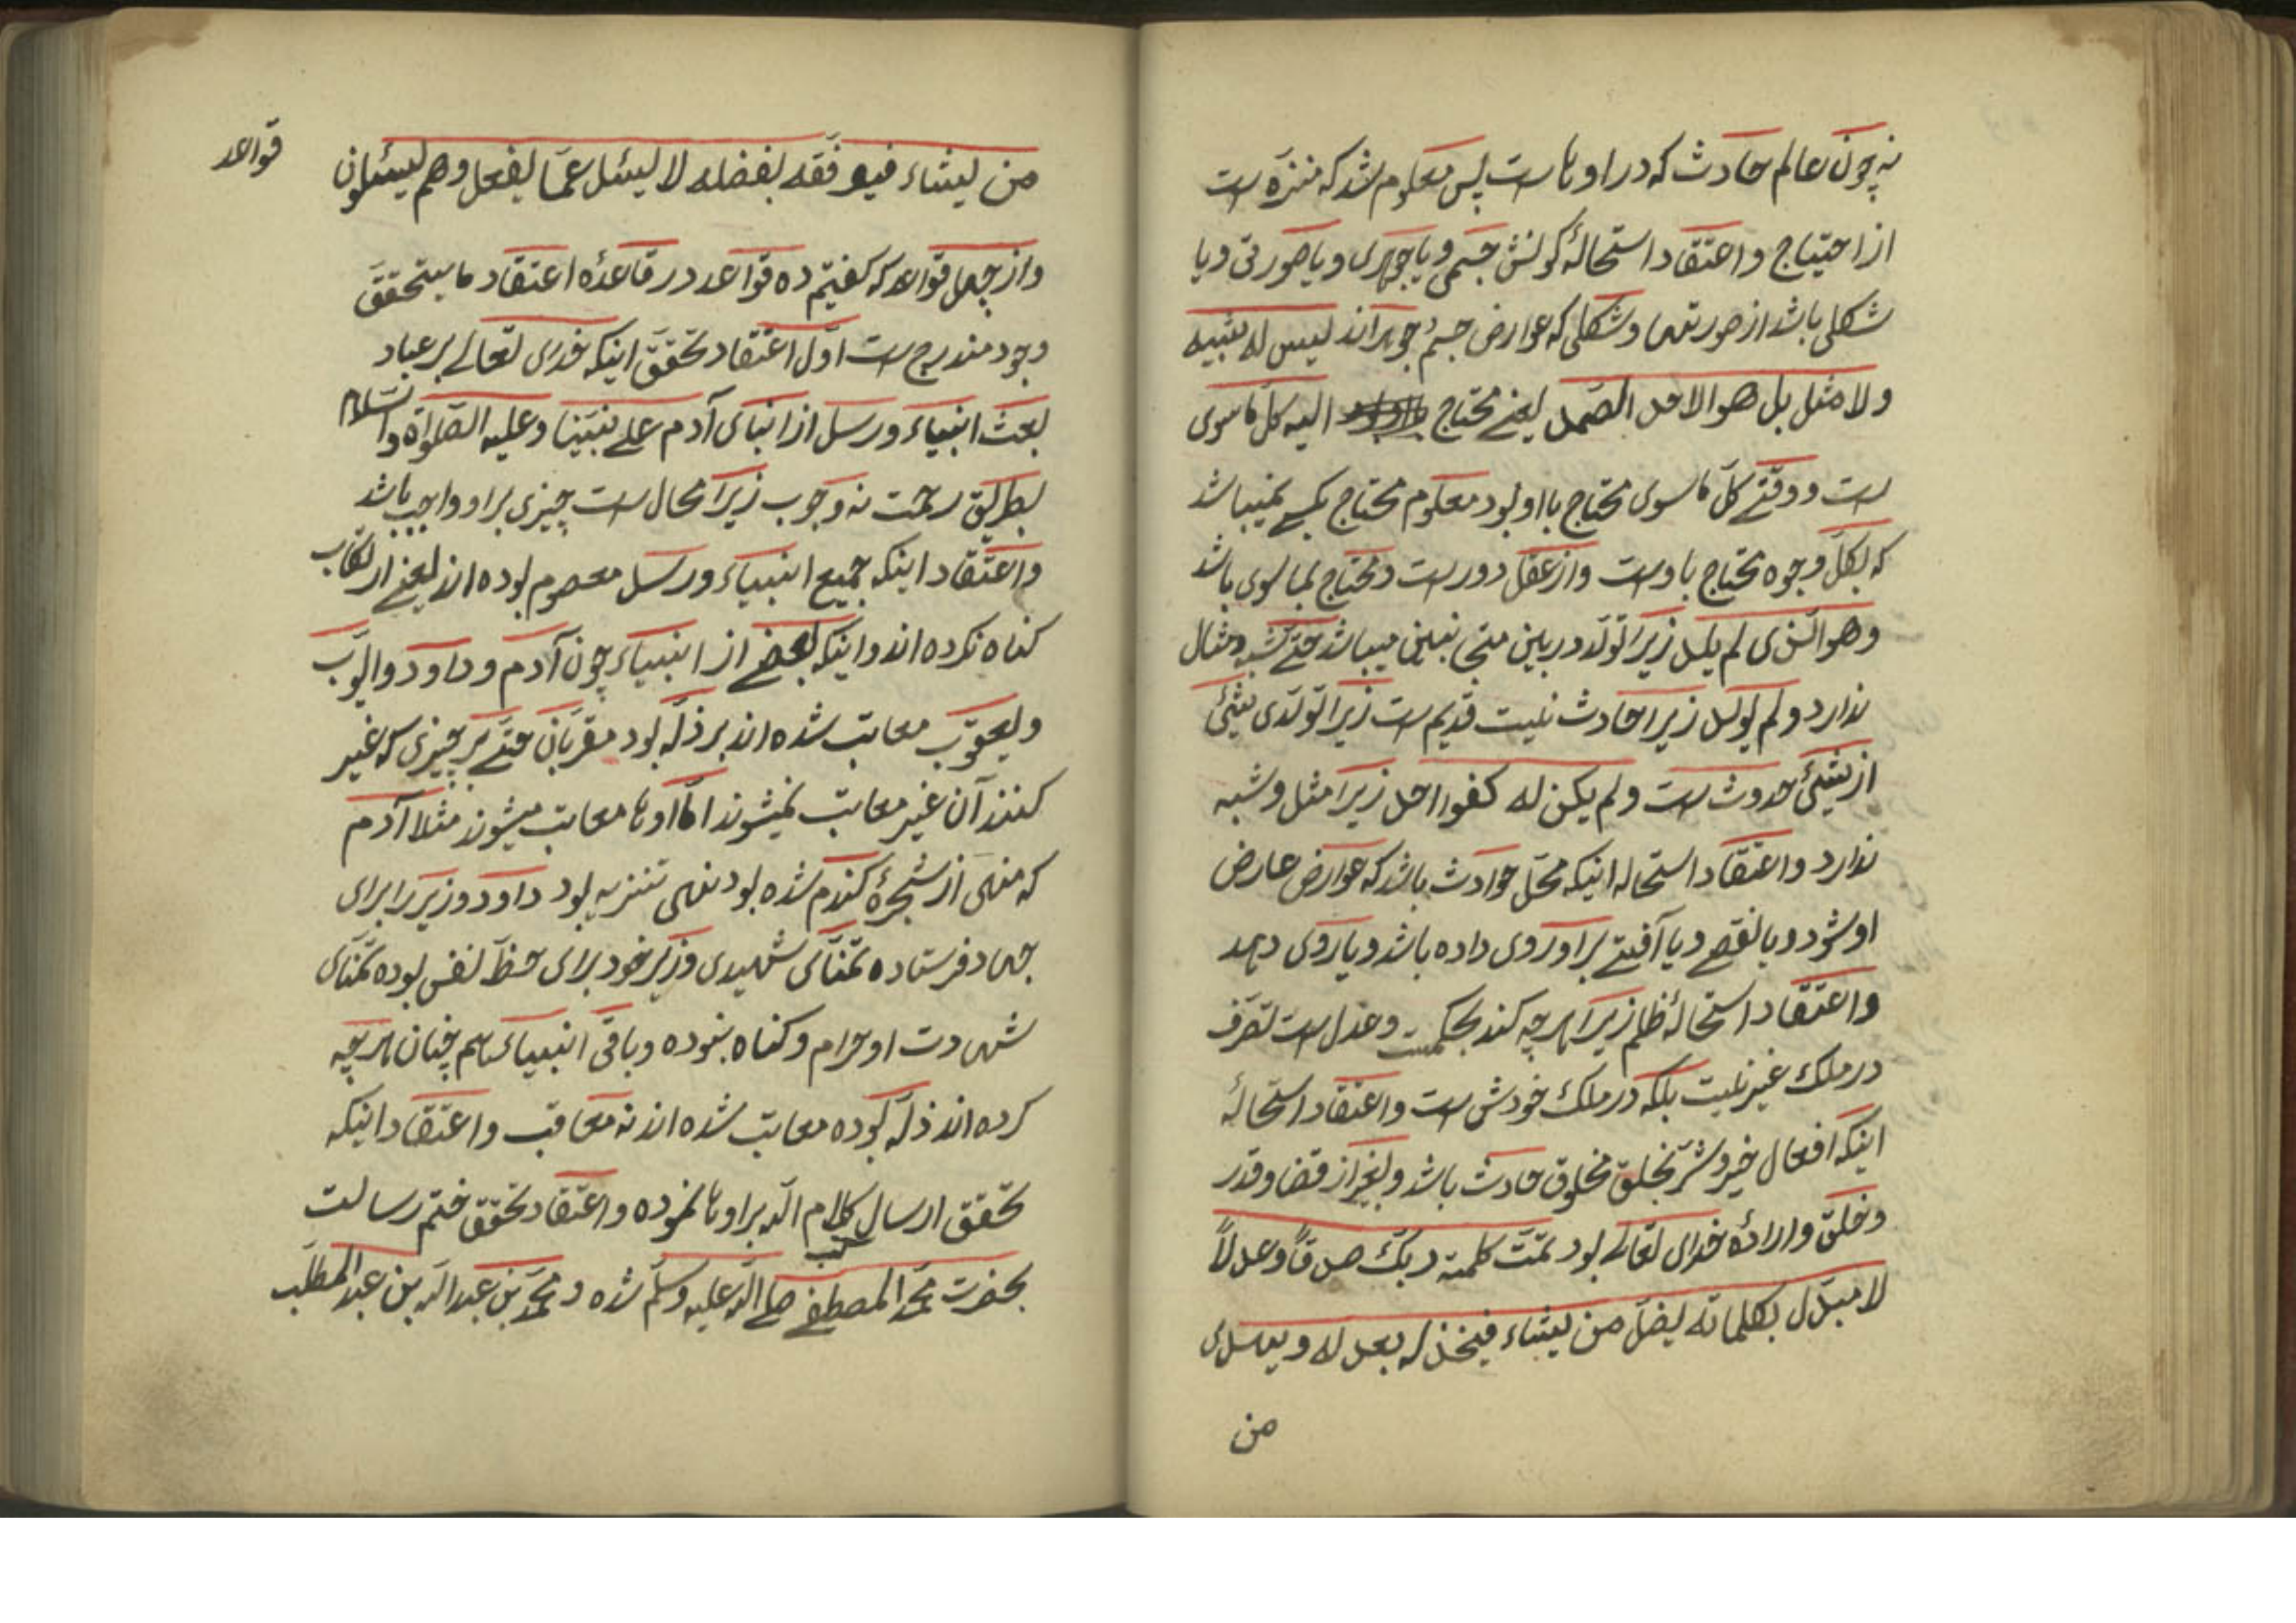 نه چون عالم حادث که در اوها است پس معلوم شد که منزّه است
از احتیاج و اعتقاد استحالهٔ کونش جسمی و یا جوهری و یا صورتی و یا
شکلی باشد از صورتها و شکلی که عوارض جسم جوهراند لیس له شبیه
ولا مثل بل هو الاحد الصمد یعنے محتاج الیه کل ماسوی
است و وقتے کلّ ماسوی محتاج بااو بود معلوم محتاج بکسے نمیباشد
که بکلّ وجوه محتاج باوست و از عقل دور است و محتاج بماسوی باشد
وهو الذی لم یلد زیرا تولّد در بین متجانسین میباشد حتے شبه و مثال
ندارد و لم یولد زیرا حادث نیست قدیم است زیرا تولّدی شیئ
از شیئ حدوث است و لم یکن له کفوا احد زیرا مثل و شبه
ندارد و اعتقاد استحاله اینکه محلّ حوادث باشد که عوارض عارض
او شود و یا نقصے و یا آفیتے براو روی داده باشد و یا روی دهد
واعتقاد استحالهٔ ظلم زیرا هرچه کند بحکمت وعدل است تصرّف
در ملک غیر نیست بلکه در ملک خودش است واعتقاد استحالهٔ
اینکه افعال خیر و شرّ بخلق مخلوق حادث باشد و بغیر از قضا و قدر
و خلق و ارادهٔ خدای تعالے بود تمّت کلمة ربّک صدقاً وعدلاً
لا مبدّل لکلماته یضلّ من یشاء فیخذله بعدله و یهدی
من
من یشاء فیوفّقه بفضله لا یسئل عمّا یفعل وهم یسئلون
قواعد
واز چهل قواعد که گفتیم ده قواعد در قاعدهٔ اعتقاد ما یتحقّق
وجود مندرج است اوّل اعتقاد تحقّق اینکه خدای تعالے بر عباد
بعث انبیاء و رسل از انبای آدم علے نبیّنا وعلیه الصّلواة والسّلام
بطریق رحمت نه وجوب زیرا محال است چیزی براو واجب باشد
و اعتقاد اینکه جمیع انبیاء و رسل معصوم بوده اند یعنے ارتکاب
کناه نکرده اند و اینکه بعضے از انبیاء چون آدم و داود و ایّوب
و یعقوب معاتب شده اند بر ذلّه بود مقربان حتے بر چیزی که غیر
کنند آن غیر معاتب نمیشوند امّا اوها معاتب میشوند مثلا آدم
که منهی از شجرهٔ کندم شده بود نهی تنزیه بود داود وزیر را برای
جهاد فرستاده تمنّای شهیدی وزیر خود برای حظّ نفس بوده تمنّای
شهادت او حرام و کناه نبوده و باقی انبیاء هم چنان هرچه
کرده اند ذلّه بوده معاتب شده اند نه معاقب و اعتقاد اینکه
تحقق ارسال کتب کلام الله براوها نموده و اعتقاد تحقّق ختم رسالت
بحضرت محمّد المصطفے صلے الله علیه وسلّم شده و محمّد بن عبد الله بن عبد المطلّب